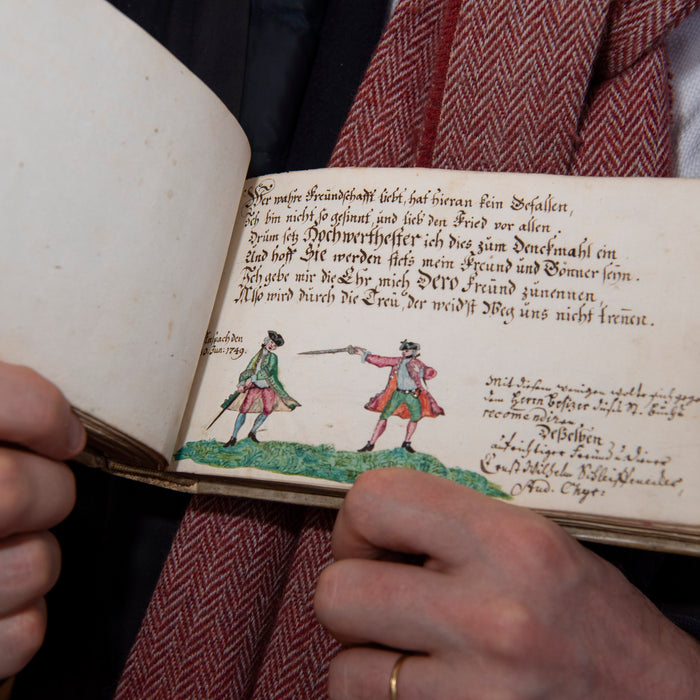 Wer wahre Freündschafft liebt, hat hieran kein Gefallen,
Ich bin nicht so gesinnt, und lieb den Fried vor allen.
Drum setz Hochwerthester ich dies zum Denckmahl ein
Und hoff Sie werden stets mein Freund und Gönner seyn.
Ich gebe mir die Ehr, mich Dero Freund zunennen,
Also wird durch die Treü, der weidst Weg uns nicht treñen.
den
Jun: 1749.
Mit diesem wenigen wolte sich
dem Herrn Besitzer dieses St. Buchs
recomendiren
Desselben
aufrichtiger Freund u. Diener
Ernst Wilhelm